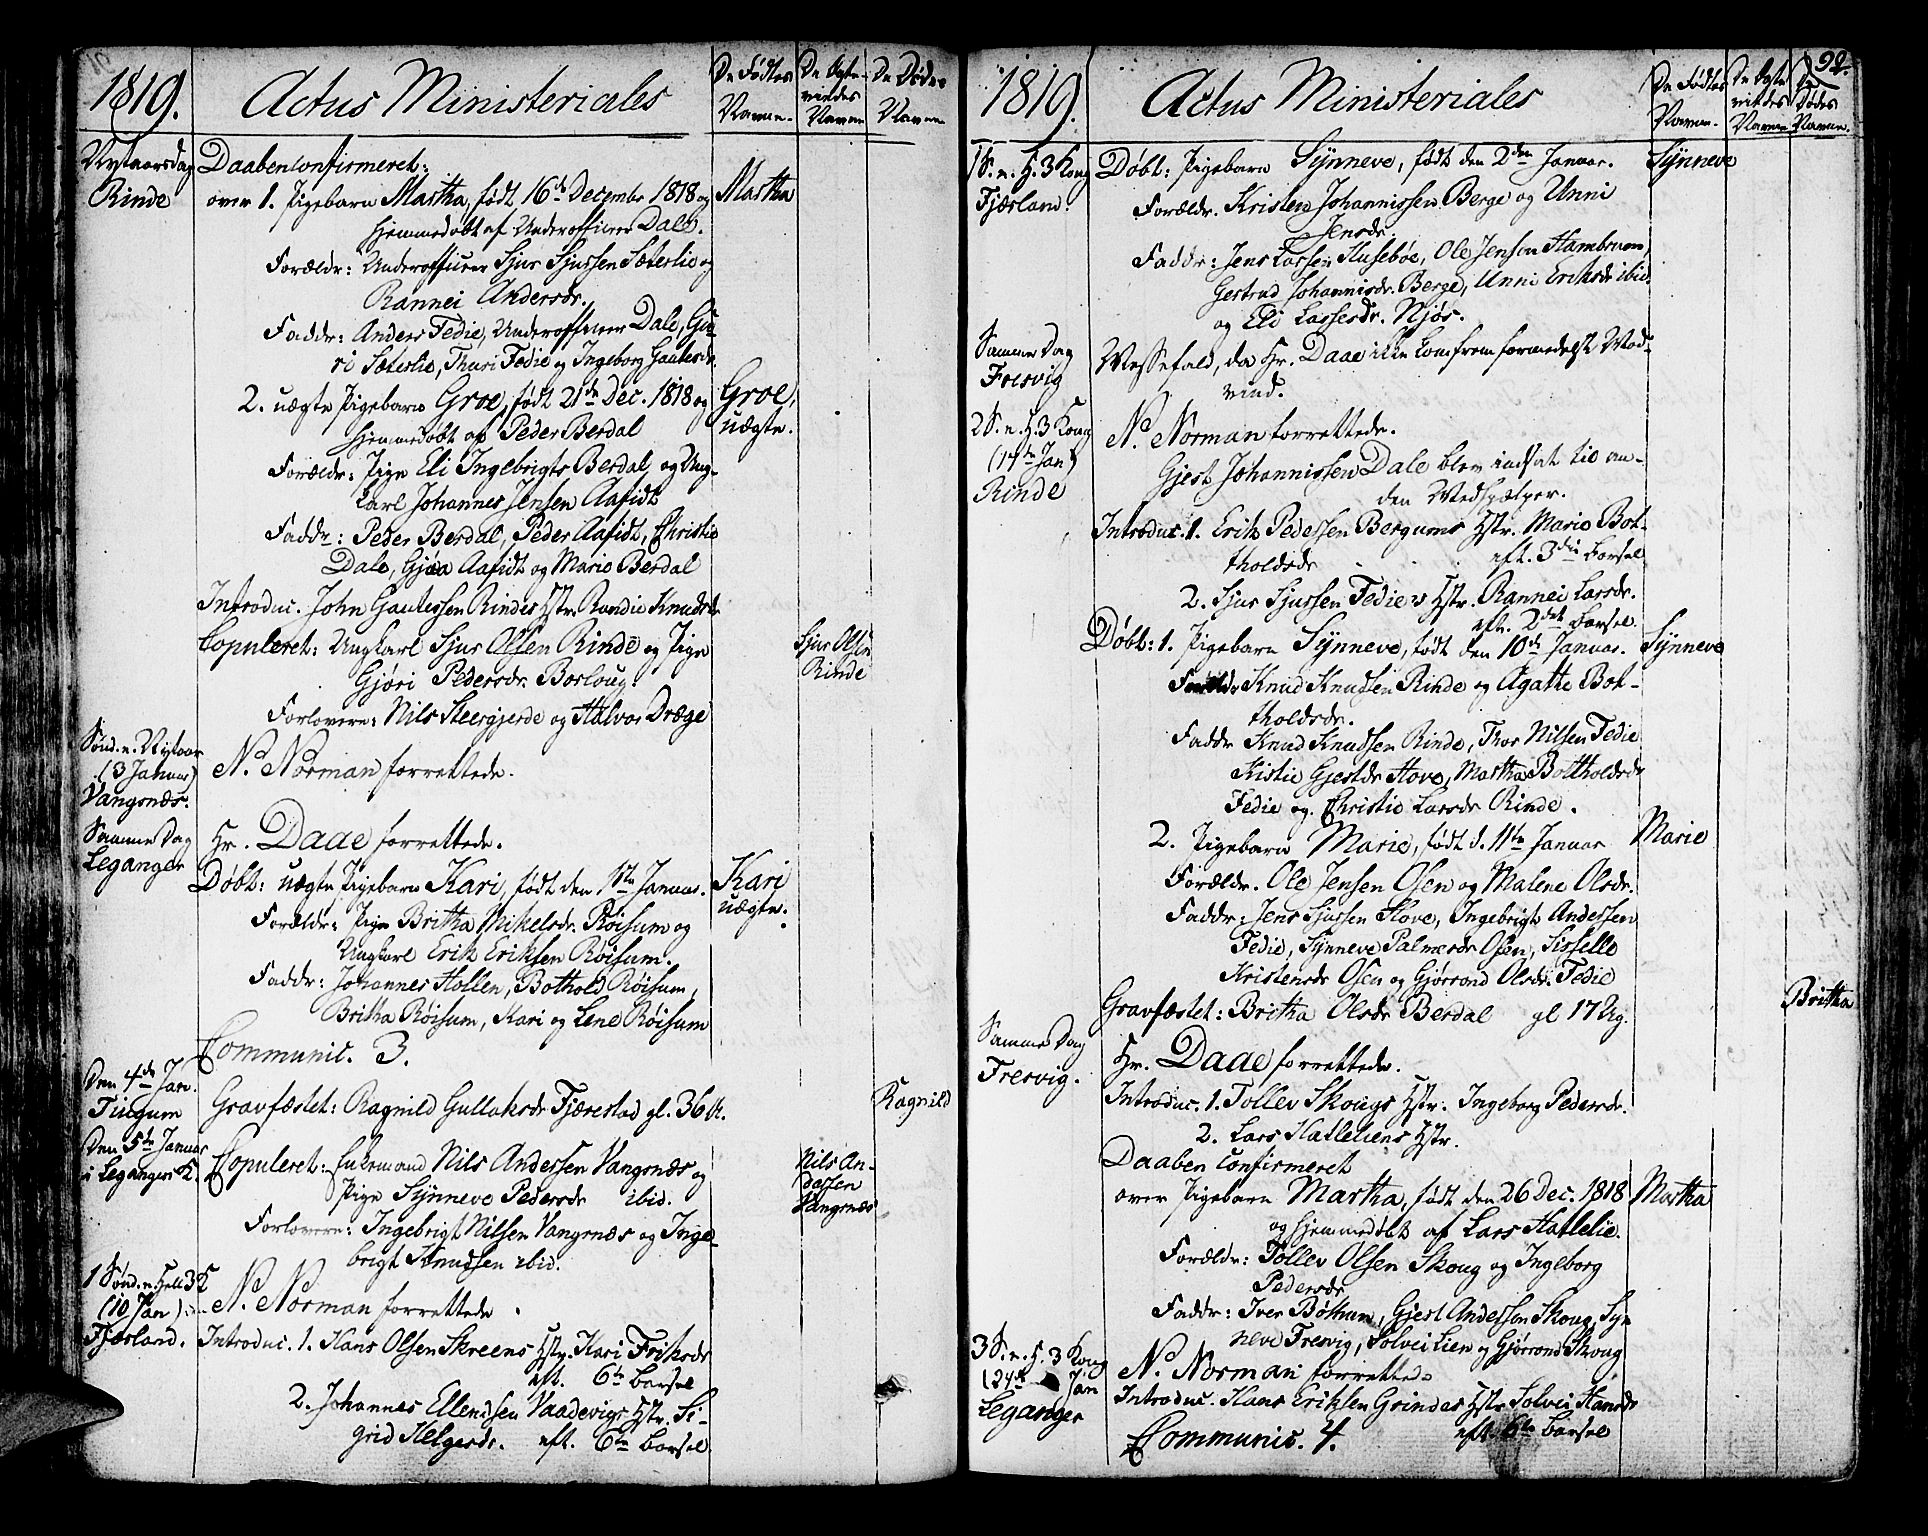 1819.
Actus Ministeriales
De Fødtes Navne.
De Ægtevindes Navne
De Dødes Navne
Nytaarsdag
Rinde
Daabenconfirmeret:
over 1. Pigebarn Martha, født 16de December 1818 og
Martha
hjemmedøbt af Underofficeer Dale.
Forældr: Underofficeer Sjur Sjurssen Sæterlie og
Rannei Andersdr.
Faddr: Anders Fedie, Underofficeer Dale, Gu-
ri Sæterlie, Thuri Fedie og Ingeborg Gautesdr.
2. uægte Pigebarn Groe, født 21de Dec. 1818 og
Groe,
uægte.
hjemmedøbt af Peder Berdal
Forældr: Pige Eli Ingebrigts Berdal, og Ung-
karl Johannes Jensen Aafidt
Faddr: Peder Berdal, Peder Aafidt, Christie
Dale, Gjøa Aafidt og Marie Berdal
Introduc. John Gautessen Rindes Hstr. Randie Knudsdr
Copuleret: Ungkarl Sjur Olsen Rinde og Pige
Sjur Olsen
Rinde
Gjøri Pedersdr. Borloug.
Forlovere: Nils Steergjerde og Halvor Dræge
Sønd. n. Nytaar
(3 Januar)
Vangsnæs.
N. Norman forrettede.
Samme Dag
Leganger
Hr. Daae forrettede.
Døbt: uægte Pigebarn Kari, født den 1ste Januar.
Kari
uægte.
Forældr: Pige Britha Mikelsdr. Røisum og
Ungkarl Erik Eriksen Røisum.
Faddr: Johannes Hollen, Bothold Røisum,
Britha Røisum, Kari og Lene Røisum
Communic. 3.
Den 4de Jan.
Tiugum
Gravfæstet: Ragnild Gullaksdr Fjærestad gl. 36 A.
Ragnild
Den 5te Januar
i Leganger K.
Copuleret: Enkemand Nils Andersen Vangsnæs og
Nils An-
dersen
Vangsnæs
Pige Synneve Pedersdr ibid.
Forlovere: Ingebrigt Nilsen Vangsnæs og Inge-
brigt Knudsen ibid.
1 Sønd. n. Hell. 3 K
(10 Jan)
Fjærland.
N. Norman forrettede.
Introduc. 1. Hans Olsen Skreens Hstr. Kari Eriksdr
eft. 6te Barsel
2. Johannes Ellendsen Vaadevigs Hstr. Si-
grid Helgesdr. eft. 6te Barsel
1819.
Actus Ministeriales
De Fødtes Navne.
De Ægtevindes Navne
De Dødes Navne.
92.
1 S. n. H. 3 Kong
Fjærland.
Døbt: Pigebarn Synneve, født den 2den Januar.
Synneve
Forældr. Kristen Johannissen Berge og Unni
Jensdr.
Faddr: Jens Larsen Husebøe, Ole Jenson Hambruem,
Gertrud Johannisdr. Berge, Unni Eriksdr ibid.
og Eli Lassesdr. Njøs.
Samme Dag
Fresvig
Messefald, da Hr. Daae ikke komfrem formedelst Mod-
vind.
2 S. n. H. 3 Kong
(17de Jan)
Rinde
N. Norman forrettede.
Gjest Johannissen Dale blev indsat til an-
den Medhjælper.
Introduc. 1. Erik Pedersen Bergums Hstr. Marie Bot-
tholdsdr eft. 3die Barsel
2. Sjur Sjurssen Fedies Hstr. Rannei Larsdr.
eft. 2det Barsel.
Døbt: 1. Pigebarn Synneve, født den 10de Januar.
Synneve
Forældr Knud Knudsen Rinde og Agathe Bot-
tholdsdr.
Faddr Knud Knudsen Rinde, Thor Nilsen Fedie
Kistie Gjestdr Hove, Martha Bottholdsdr
Fedie og Christie Larsdr Rinde.
2. Pigebarn Marie, født d. 11te Januar
Marie
Forældr. Ole Jensen Osen og Malene Olsdr.
Faddr: Jens Sjurssen Hove, Ingebrigt Anderssen
Fedie, Synneve Palmesdr Osen, Sisselle
Kristensdr Osen og Gjørrond Olsdr. Fedie
Gravfæstet: Britha Olsdr Berdal gl 17 Ug.
Britha
Samme Dag
Fresvig.
Hr. Daae forrettede.
Introduc. 1. Tollev Skougs Hstr. Ingeborg Pedersdr.
2. Lars Hatleliens Hstr.
Daaben confirmeret
over Pigebarn Martha, født den 26 Dec. 1818
Martha
og hjemmedøbt af Lars Hatlelie.
Forældr: Tollev Olsen Skoug og Ingeborg
Pedersdr
Faddr: Iver Bøthun, Gjest Anderssen Skoug, Sy-
neve Fresvig, Solvei Lien og Gjørrond Skoug
3 S. n. H. 3 Kong
(24de Jan
Leganger
N. Norman forrettede
Introduc. Hans Eriksen Grindes Hstr Solvei Hansdr
eft. 6te Barsel
Communic. 4.